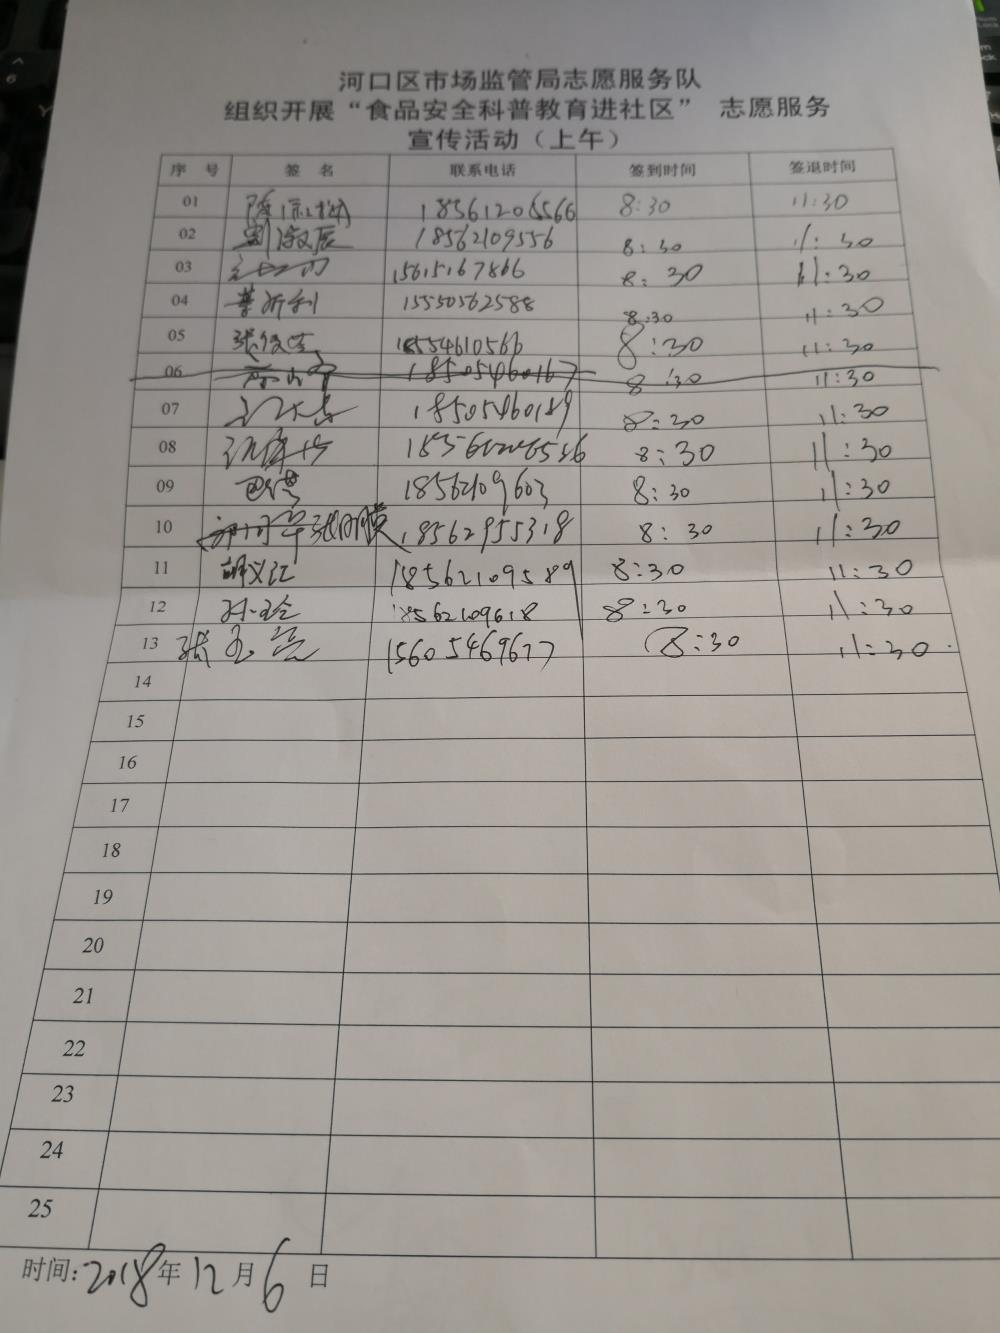 河口区市场监管局志愿服务队
组织开展“食品安全科普教育进社区” 志愿服务
宣传活动（上午）
序 号 签 名 联系电话 签到时间 签退时间
01 18561206566 8:30 11:30
02 18562109556 8:30 11:30
03 15615167866 8:30 11:30
04 15550562588 8:30 11:30
05 18554610566 8:30 11:30
06 18505460167 8:30 11:30
07 18505460189 8:30 11:30
08 8:30 11:30
09 18562109603 8:30 11:30
10 18562955318 8:30 11:30
11 胡义江 18562109589 8:30 11:30
12 孙玲 18562109618 8:30 11:30
13 15605469677 8:30 11:30
14
15
16
17
18
19
20
21
22
23
24
25
时间:2018年12月6日